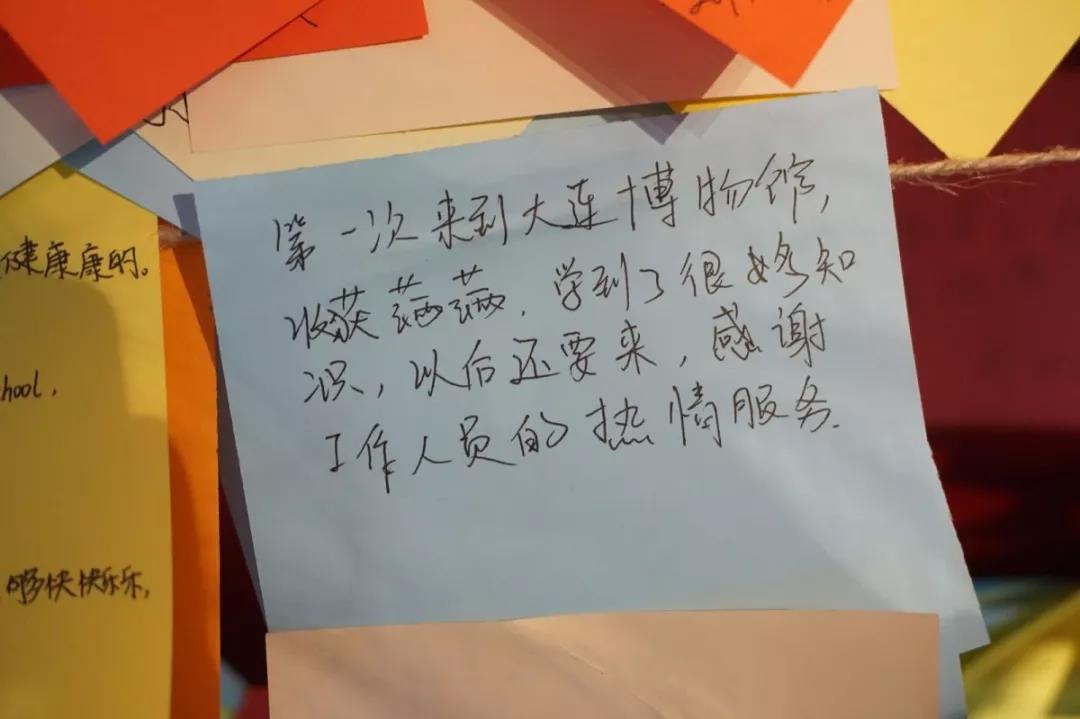 第一次来到大连博物馆,
收获满满,学到了很多知
识,以后还要来,感谢
工作人员的热情服务.
健康康的。
hool,
够快快乐乐,